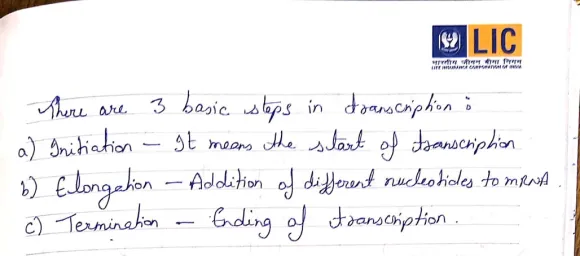 LIC
भारतीय जीवन बीमा निगम
LIFE INSURANCE CORPORATION OF INDIA
There are 3 basic steps in transcription :
a) Initiation – It means the start of transcription
b) Elongation – Addition of different nucleotides to mRNA.
c) Termination – Ending of transcription.